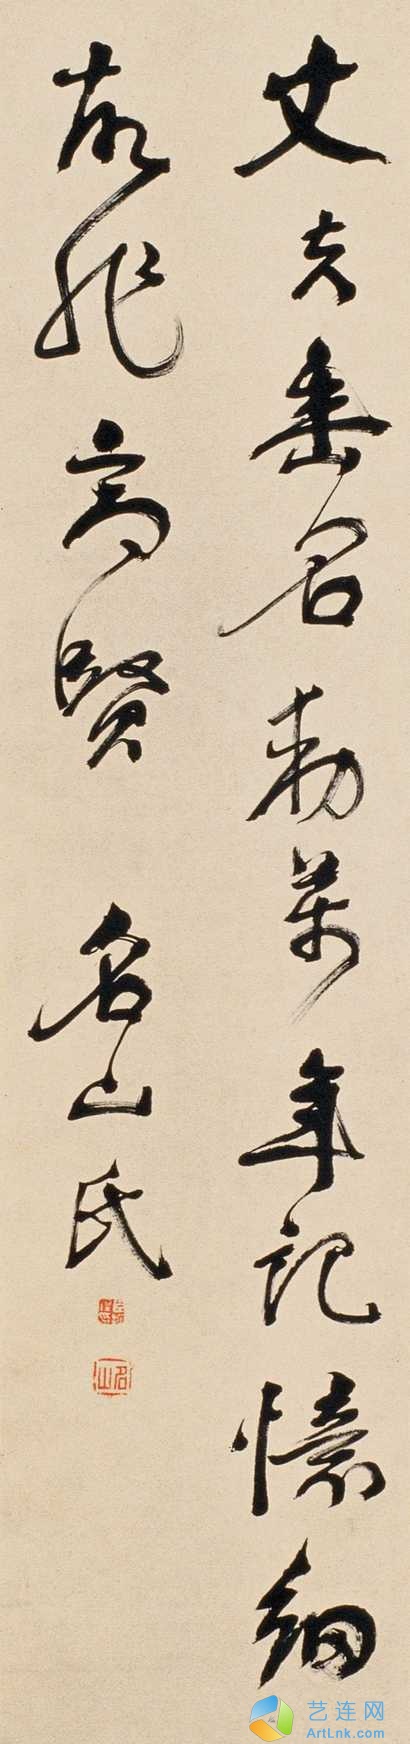 丈夫垂名動萬年記憶細
故非高賢 名山氏
名山
艺连网
ArtLnk.com